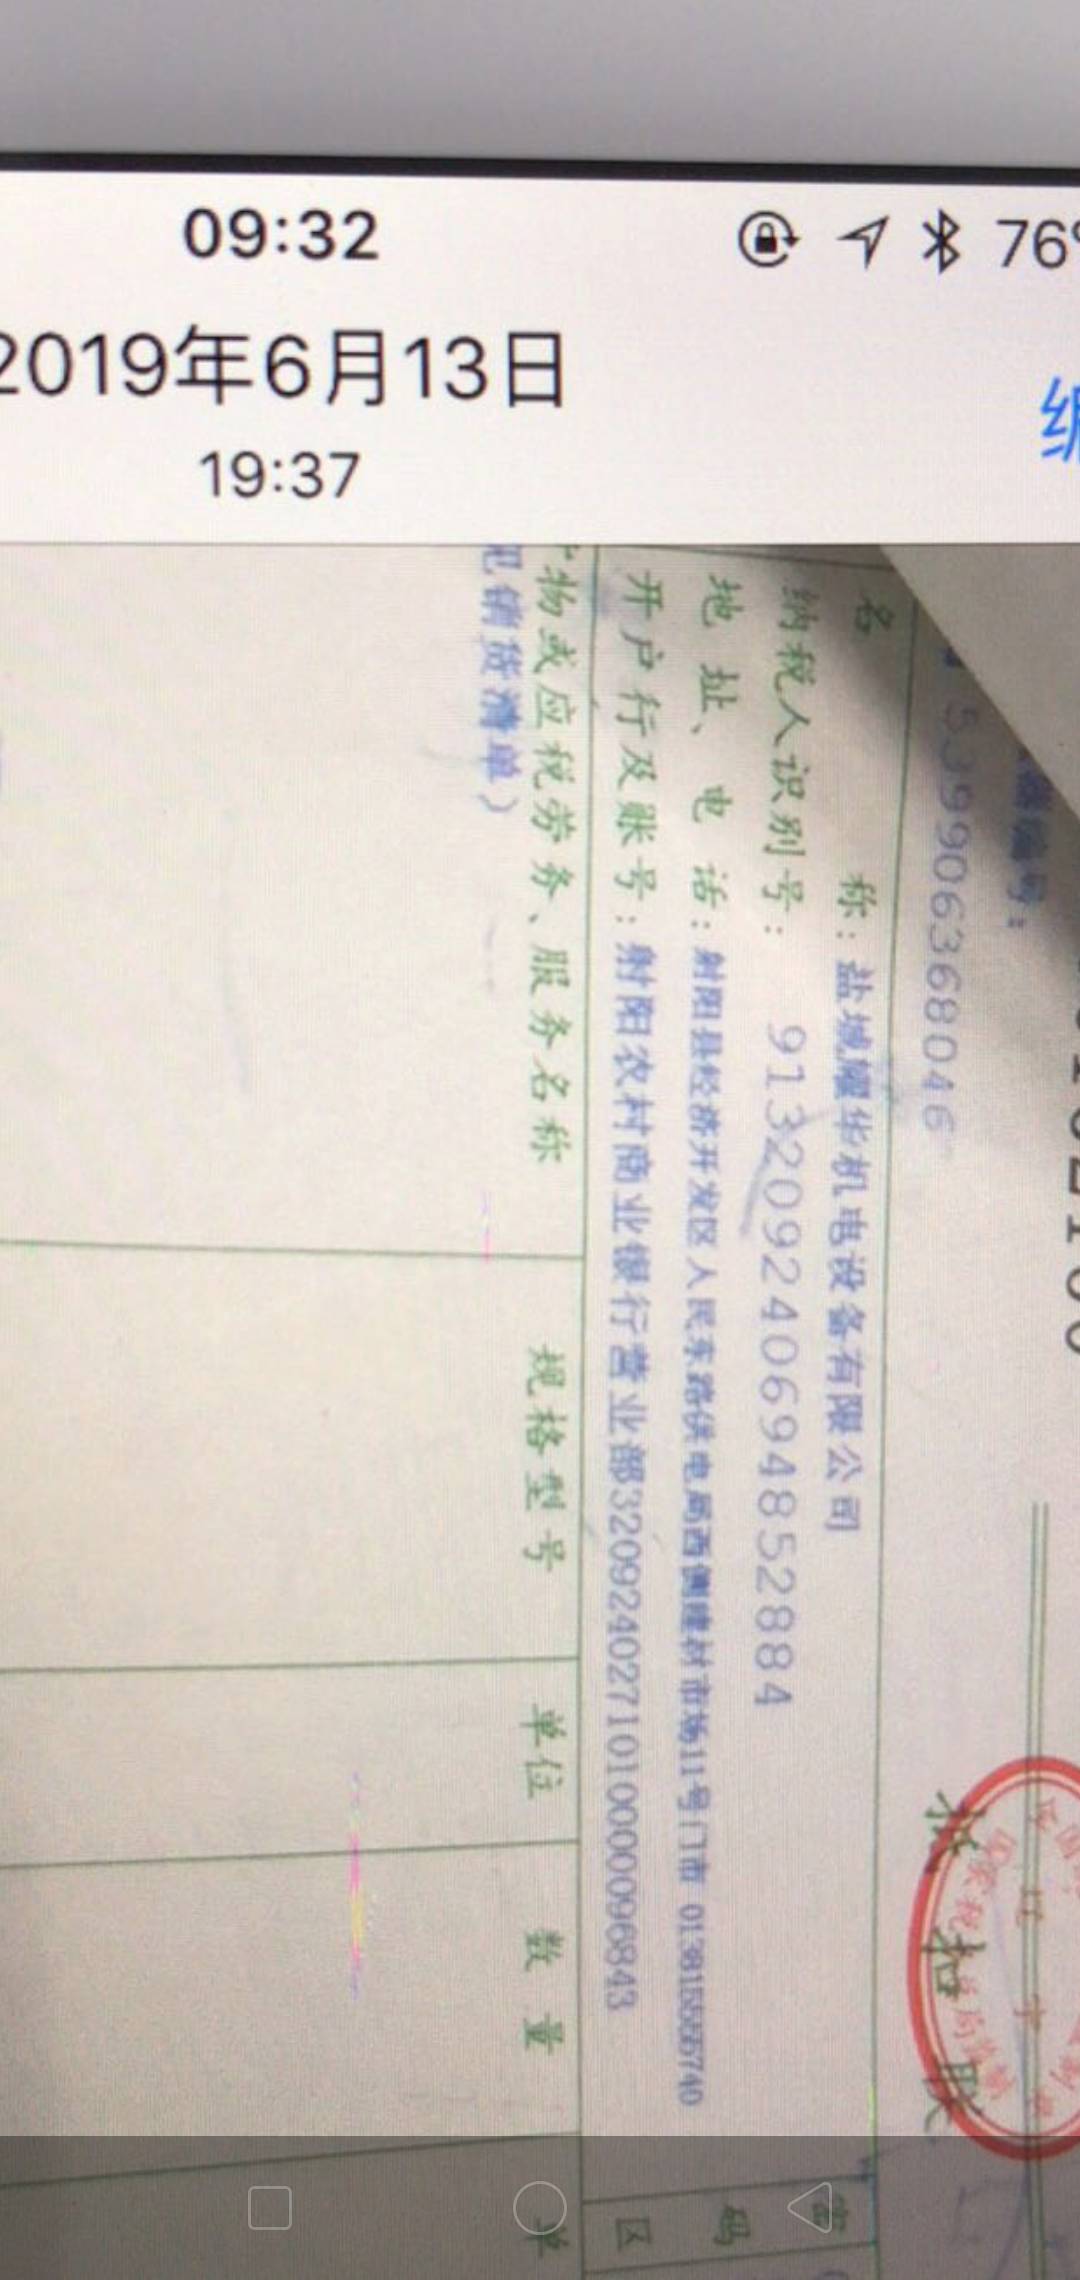 09:32
76%
2019年6月13日
19:37
编
器编号:
539906368046
抵扣联
名 称: 盐城耀华机电设备有限公司
纳税人识别号: 913209240694852884
地址、电话: 射阳县经济开发区人民东路供电局西侧建材市场11号门市 013815555740
开户行及账号: 射阳农村商业银行营业部3209240271010000096843
密
码
区
物或应税劳务、服务名称 规格型号 单位 数量 单
见销货清单)